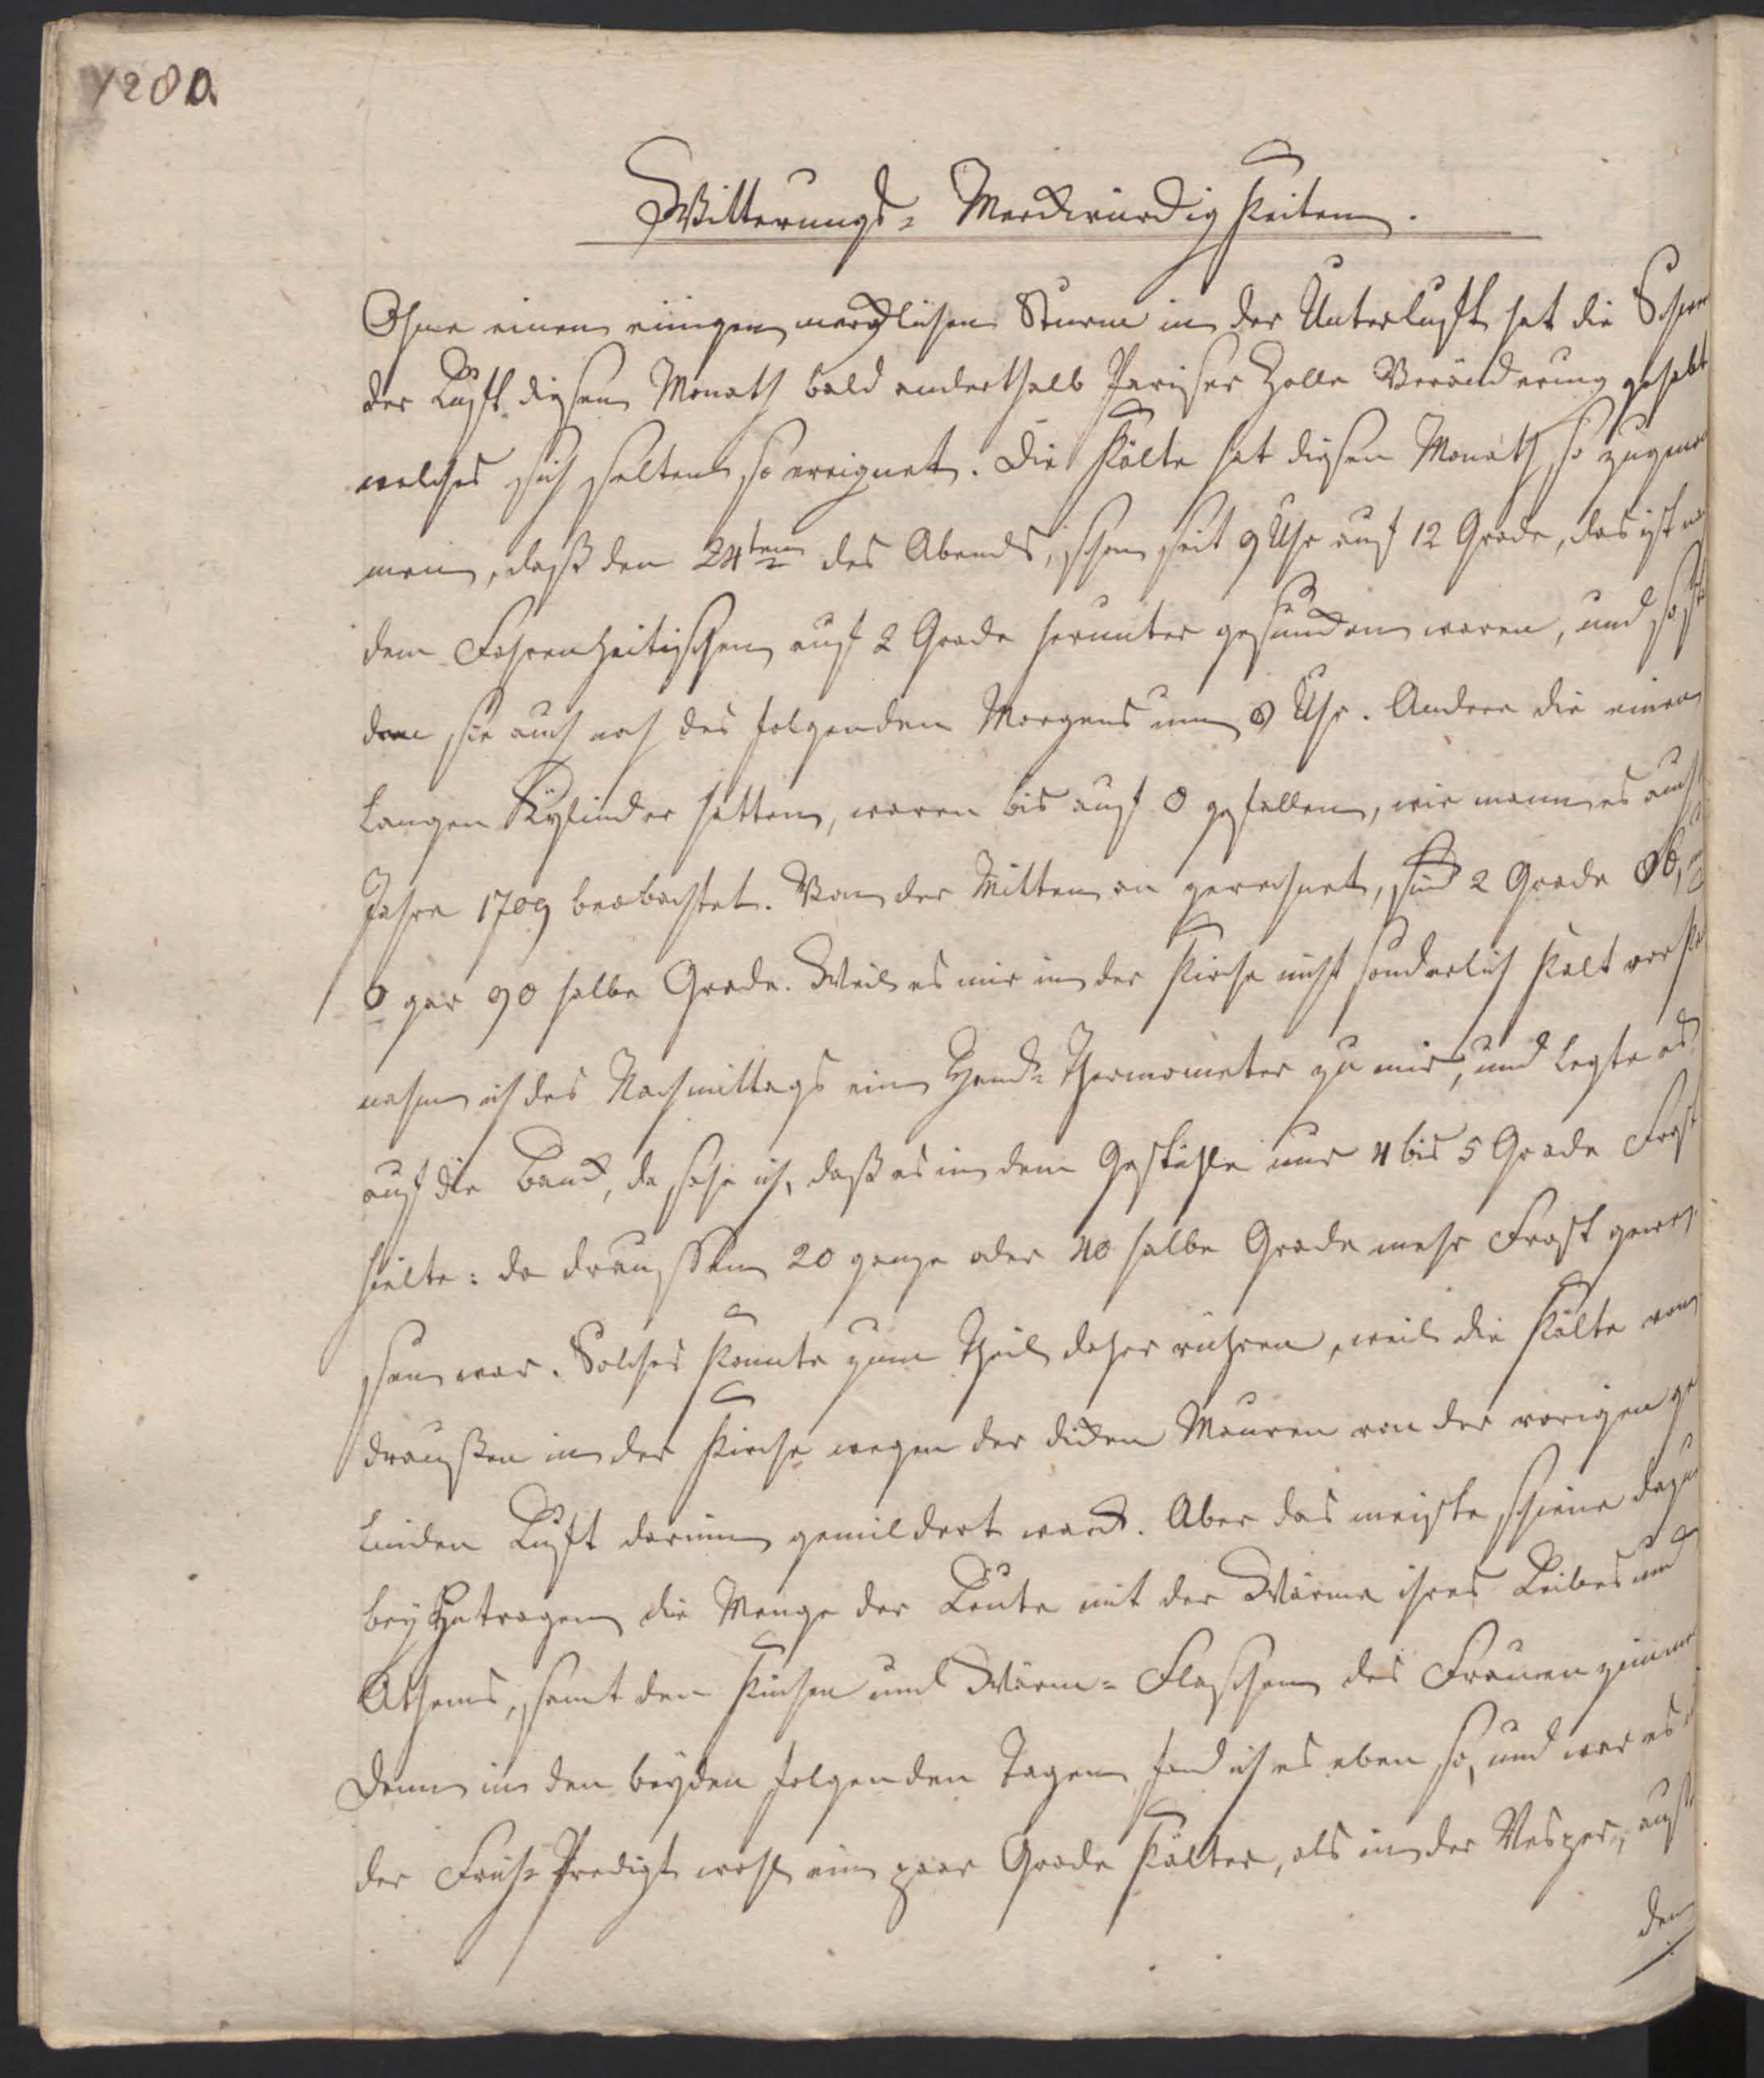 1280.
Witterungs- Merckwürdigkeiten.
Ohne einen einigen mercklichen Sturm in der Unterlufft hat die Schwere
der Lufft diesen Monath bald anderthalb Pariser Zolle Veränderung gehabt
welches sich selten so ereignet. Die Kälte hat diesen Monath so zugenom
men, daß den 24ten des Abends, schon seit 9 Uhr auf 12 Grade, das ist
dem Fahrenheitischen auf 2 Grade herunter gesuncken waren, und so
dem sie auch noch des folgenden Morgens um 8 Uhr. Andere die einen
langen Zylinder hatten, waren bis auf 0 gefallen, wie mann es auch
Jahre 1709 beobachtet. Von der Mitten an gerechnet, sind 2 Grade 88,
0 gar 90 halbe Grade. Weil es mir in der Kirche nicht sonderlich kalt
nahm ich des Nachmittags ein Hand- Thermometer zu mir, und legte es
auf die Banck, da sahe ich, daß es in dem Gestühle nur 4 bis 5 Grade Frost
hielte: da draussen 20 ganze oder 40 halbe Grade mehr Frost gewe-
sen war. Solches konnte zum Theil daher rühren, weil die Kälte von
draußen in der Kirche wegen der dicken Mauren von der vorigen ge
linden Lufft darinn gemildert ward. Aber das meiste schiene dazu
beyzutragen die Menge der Leute mit der Wärme ihres Leibes und
Athems, samt den Kicken und Wärm- Flaschen des Frauenzimmers
Denn in den beyden folgenden Tagen fand ich es eben so, und war es
der Früh- Predigt wohl ein paar Grade kälter, als in der Vesper,
den